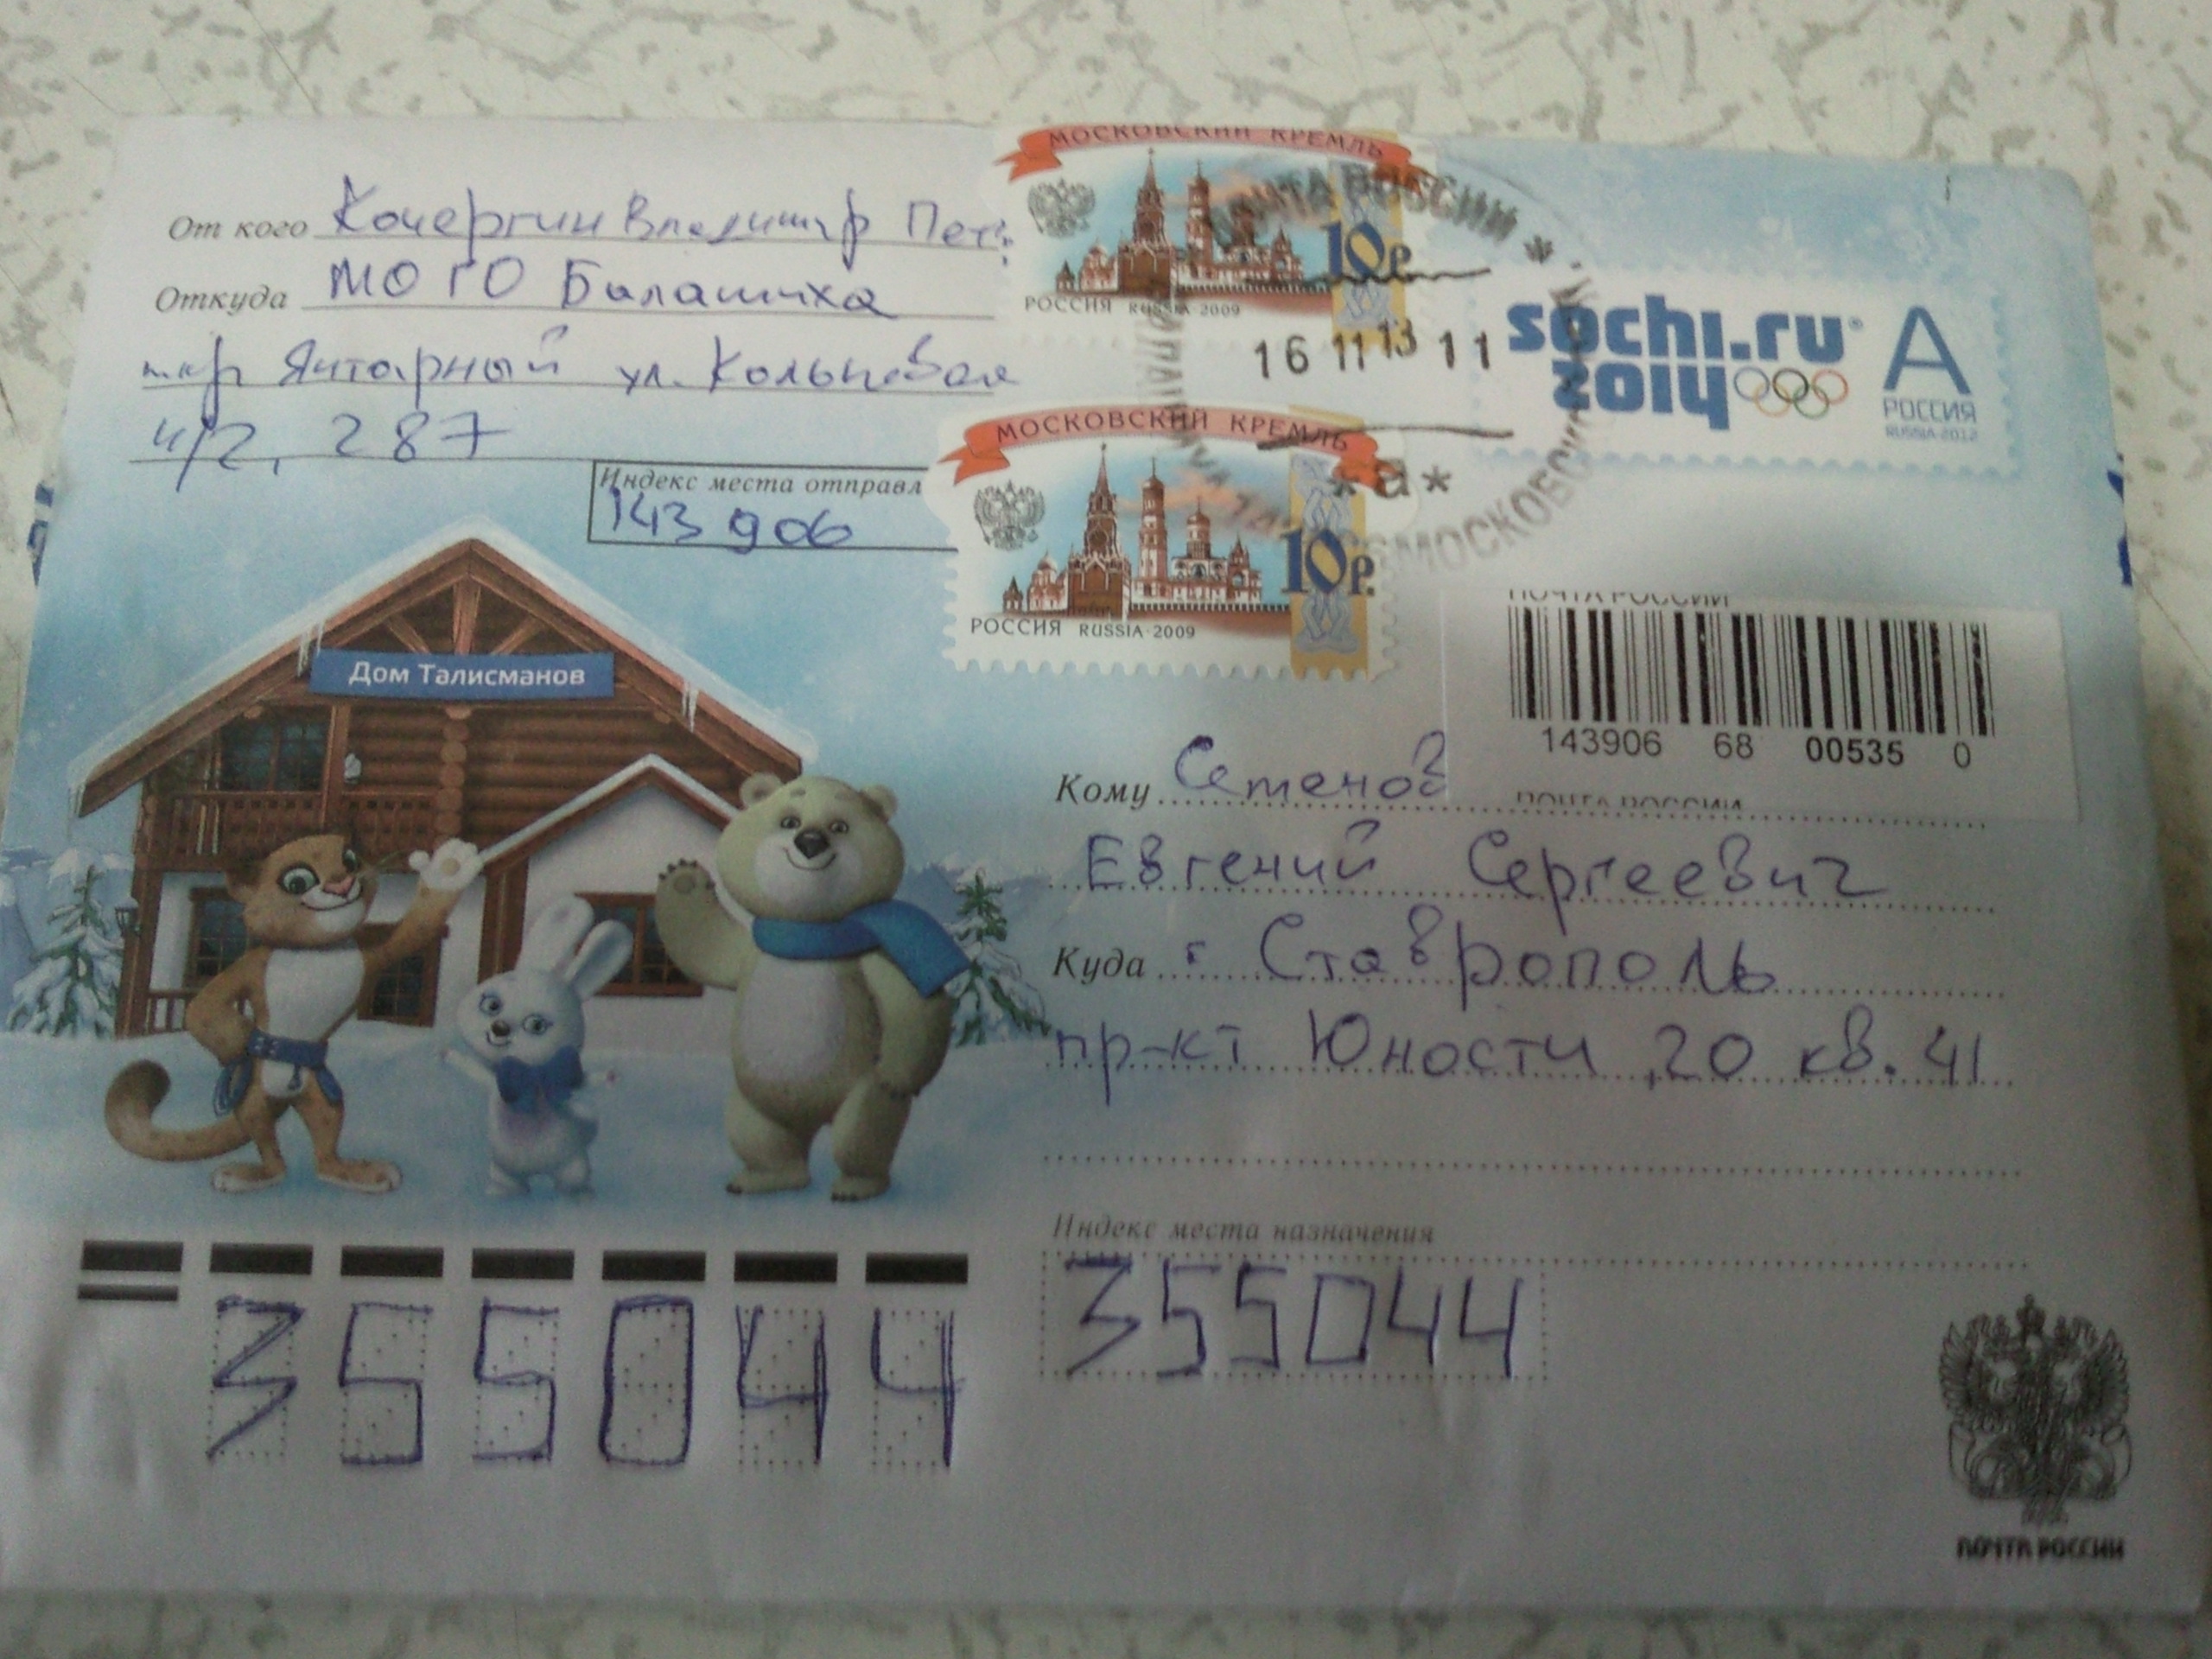 От кого Кочергин Владимир Пет
Откуда МО ГО Балашиха
мкр Янтарный ул. Кольцевая
4/2, 287
Индекс места отправл
143906
МОСКОВСКИЙ КРЕМЛЬ
10р.
РОССИЯ RUSSIA·2009
ПОЧТА РОССИИ
16 11 13 11
*а*
МОСКОВСК
МОСКОВСКИЙ КРЕМЛЬ
10р.
РОССИЯ RUSSIA·2009
sochi.ru
2014
А
РОССИЯ
RUSSIA·2012
ПОЧТА РОССИИ
143906 68 00535 0
ПОЧТА РОССИИ
Дом Талисманов
Кому Семенов
Евгений Сергеевич
Куда г Ставрополь
пр-кт Юности, 20 кв. 41
Индекс места назначения
355044
355044
ПОЧТА РОССИИ